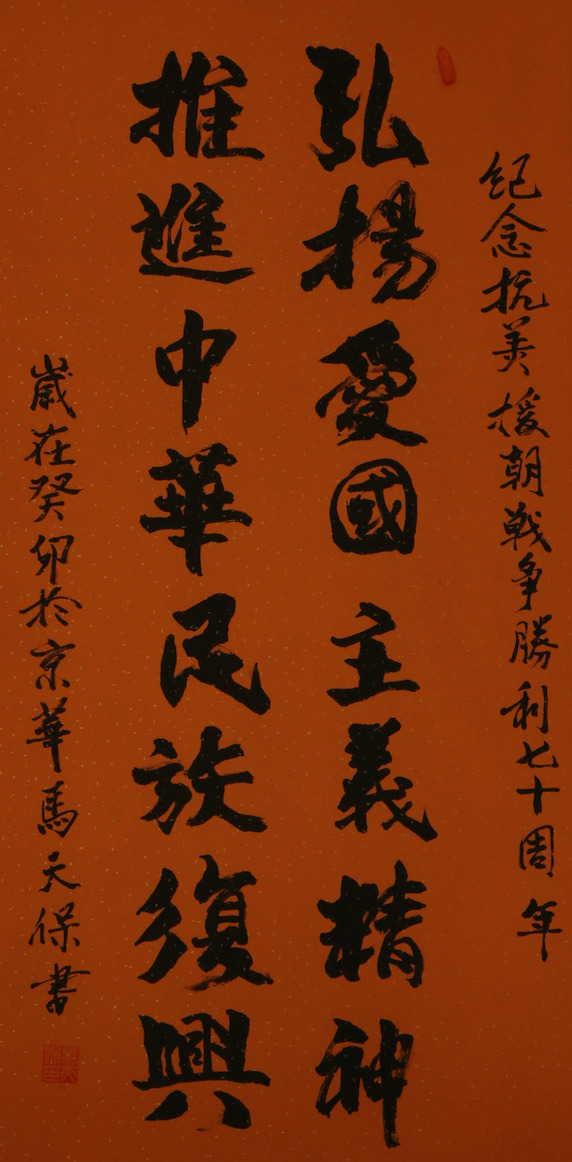 纪念抗美援朝戦争勝利七十周年
弘揚愛國主義精神
推進中華民族復興
嵗在癸卯於京華馬天保书